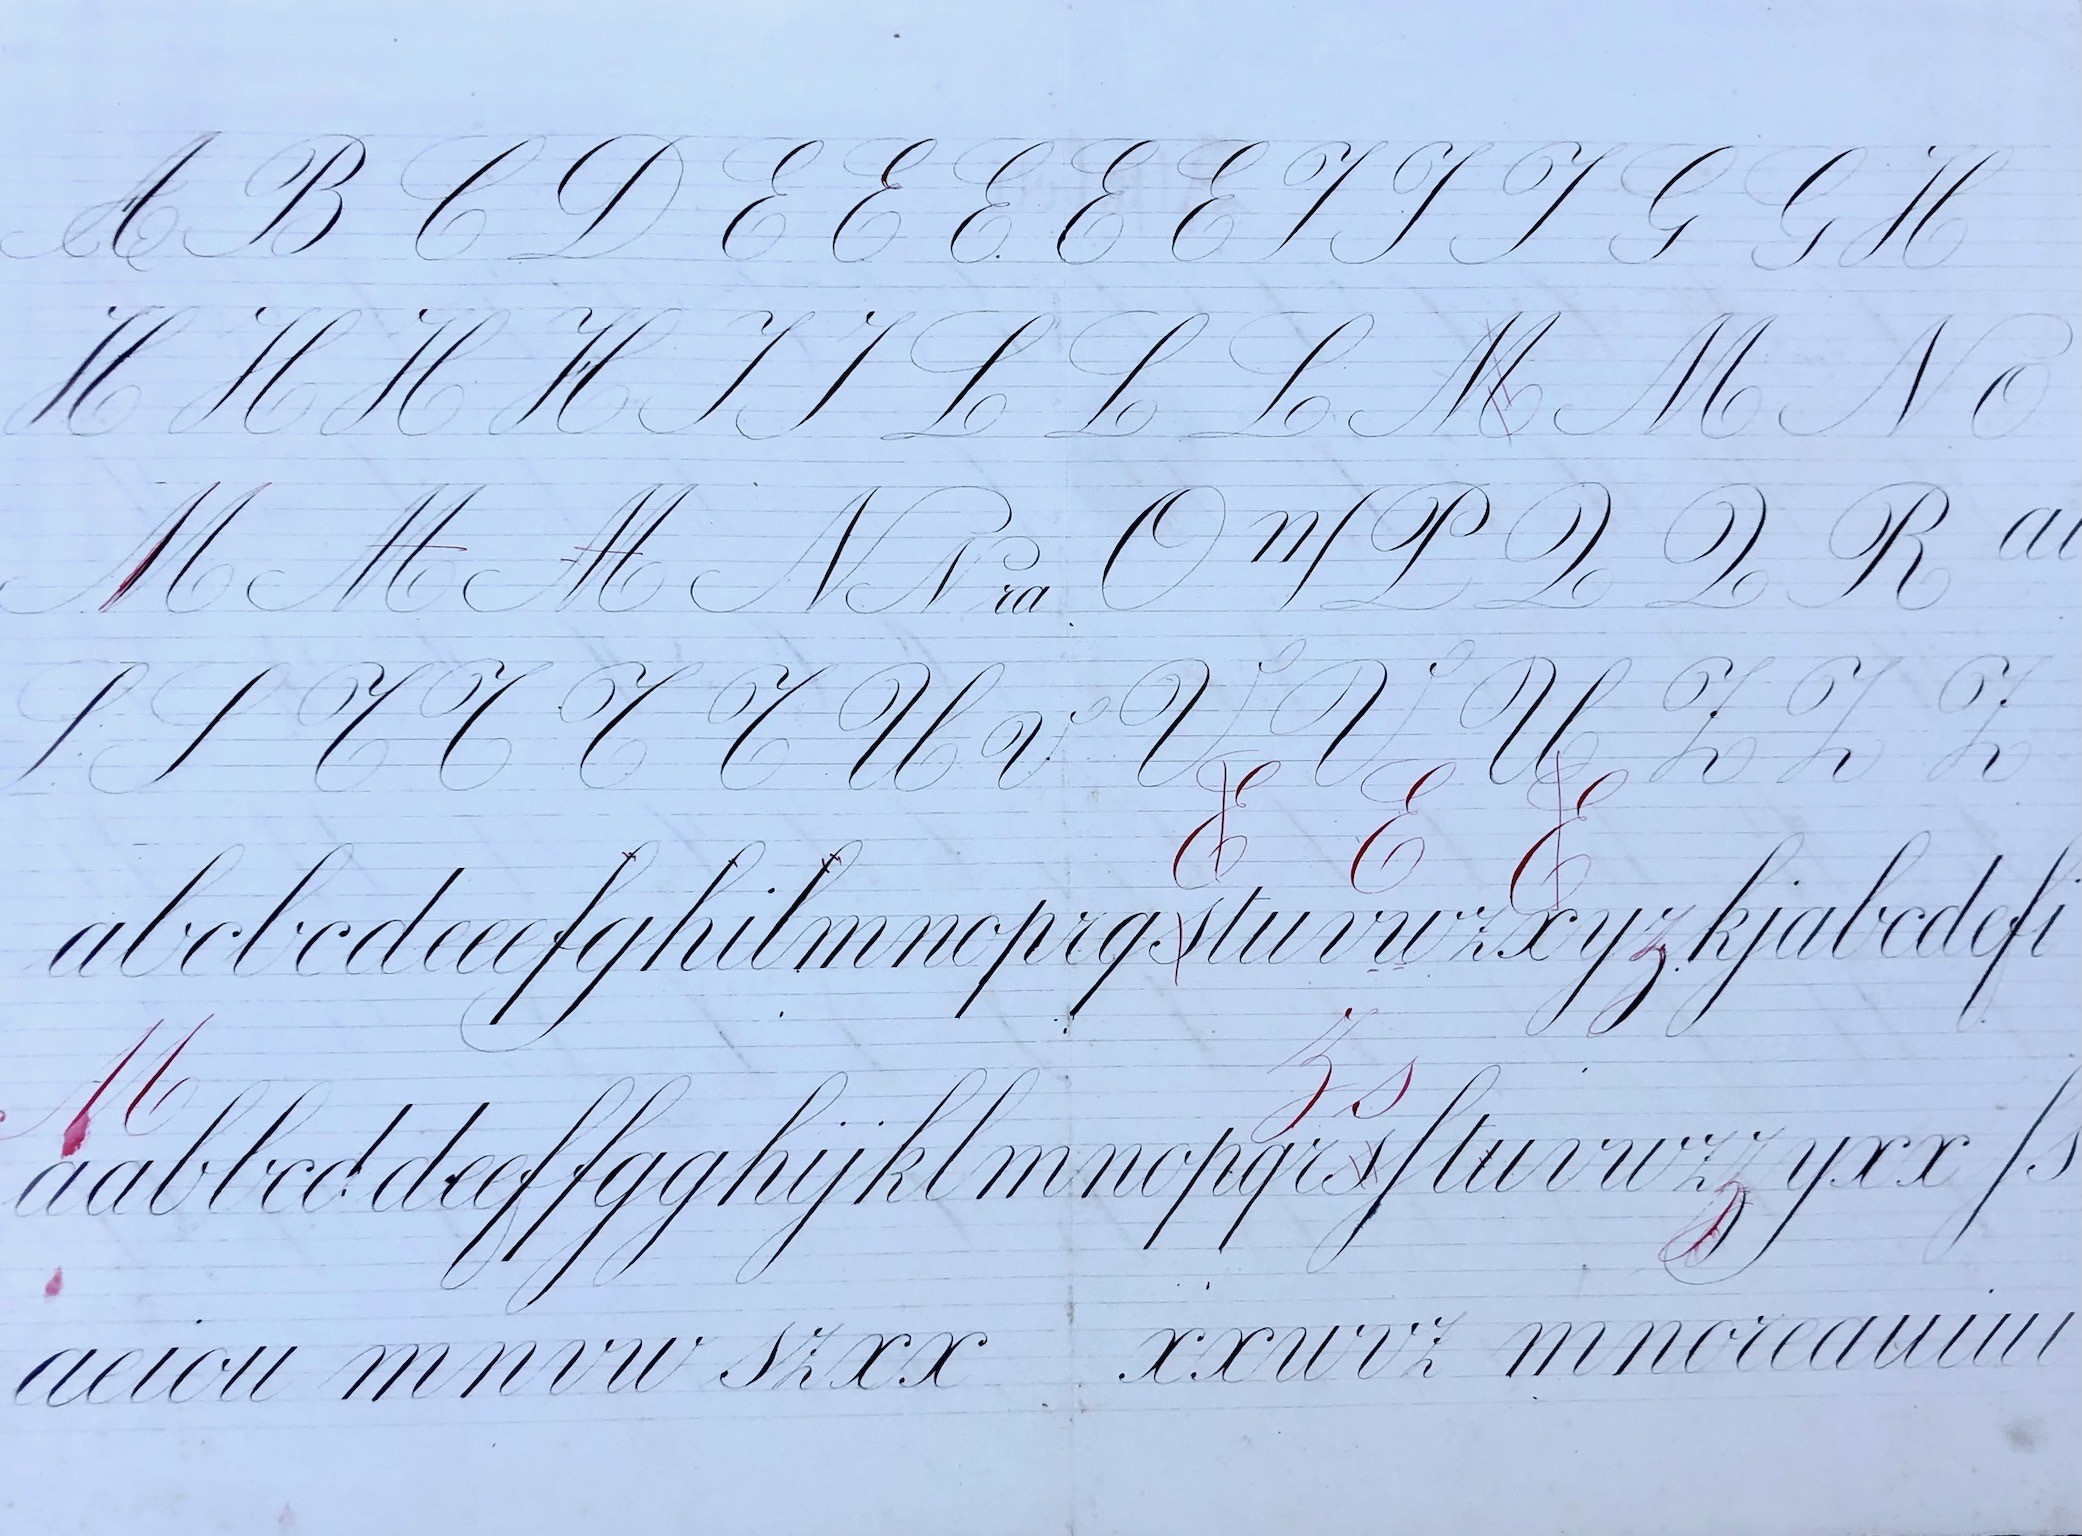 A B C D E E E E E F F F G G H
H H H H I I L L L M M N O
M M M N N ra O m f P Q Q R ai
S S T T T T U v V V U Z Z Z
E E E
abcbcdeeefghilmnoprqstuvwzxyzkjabcdefi
M z s
aabbccddeeffgghijklmnopqrsſtuvwzzyxx ſs
aeiou mnvw szxx xxwvz mnoreauiu